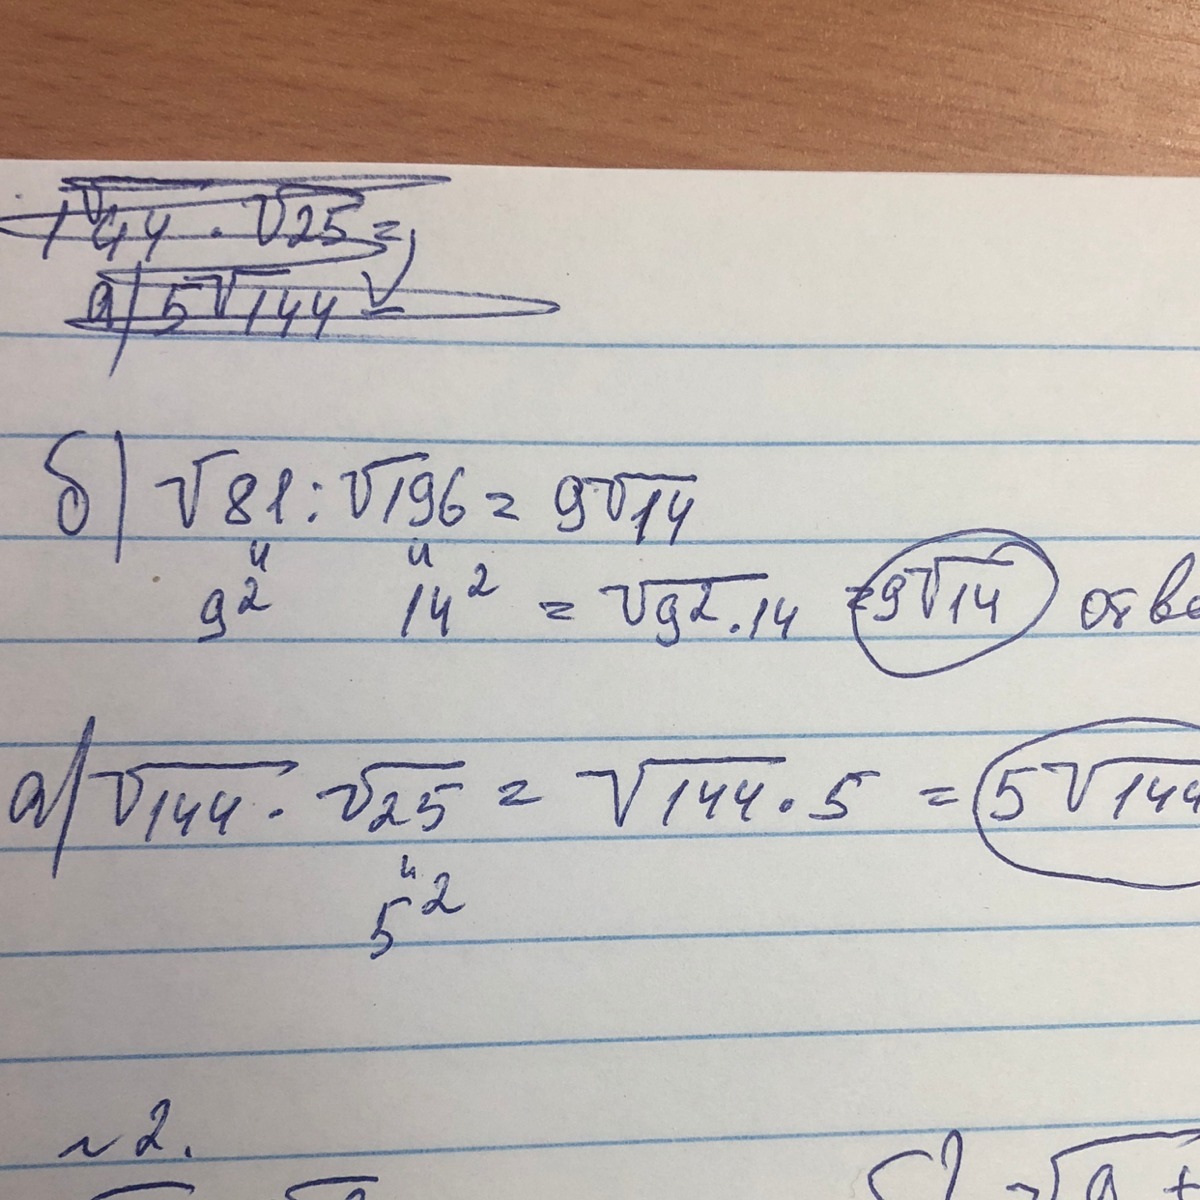 √144 · √25 =
а) 5√144 =
б) √81 : √196 = 9√14
9² 14² = √9²·14 = 9√14
а) √144 · √25 = √144 · 5 = 5√144
5²
~2.